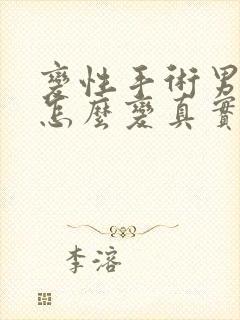 變性手術男
怎麼變真實
李溶